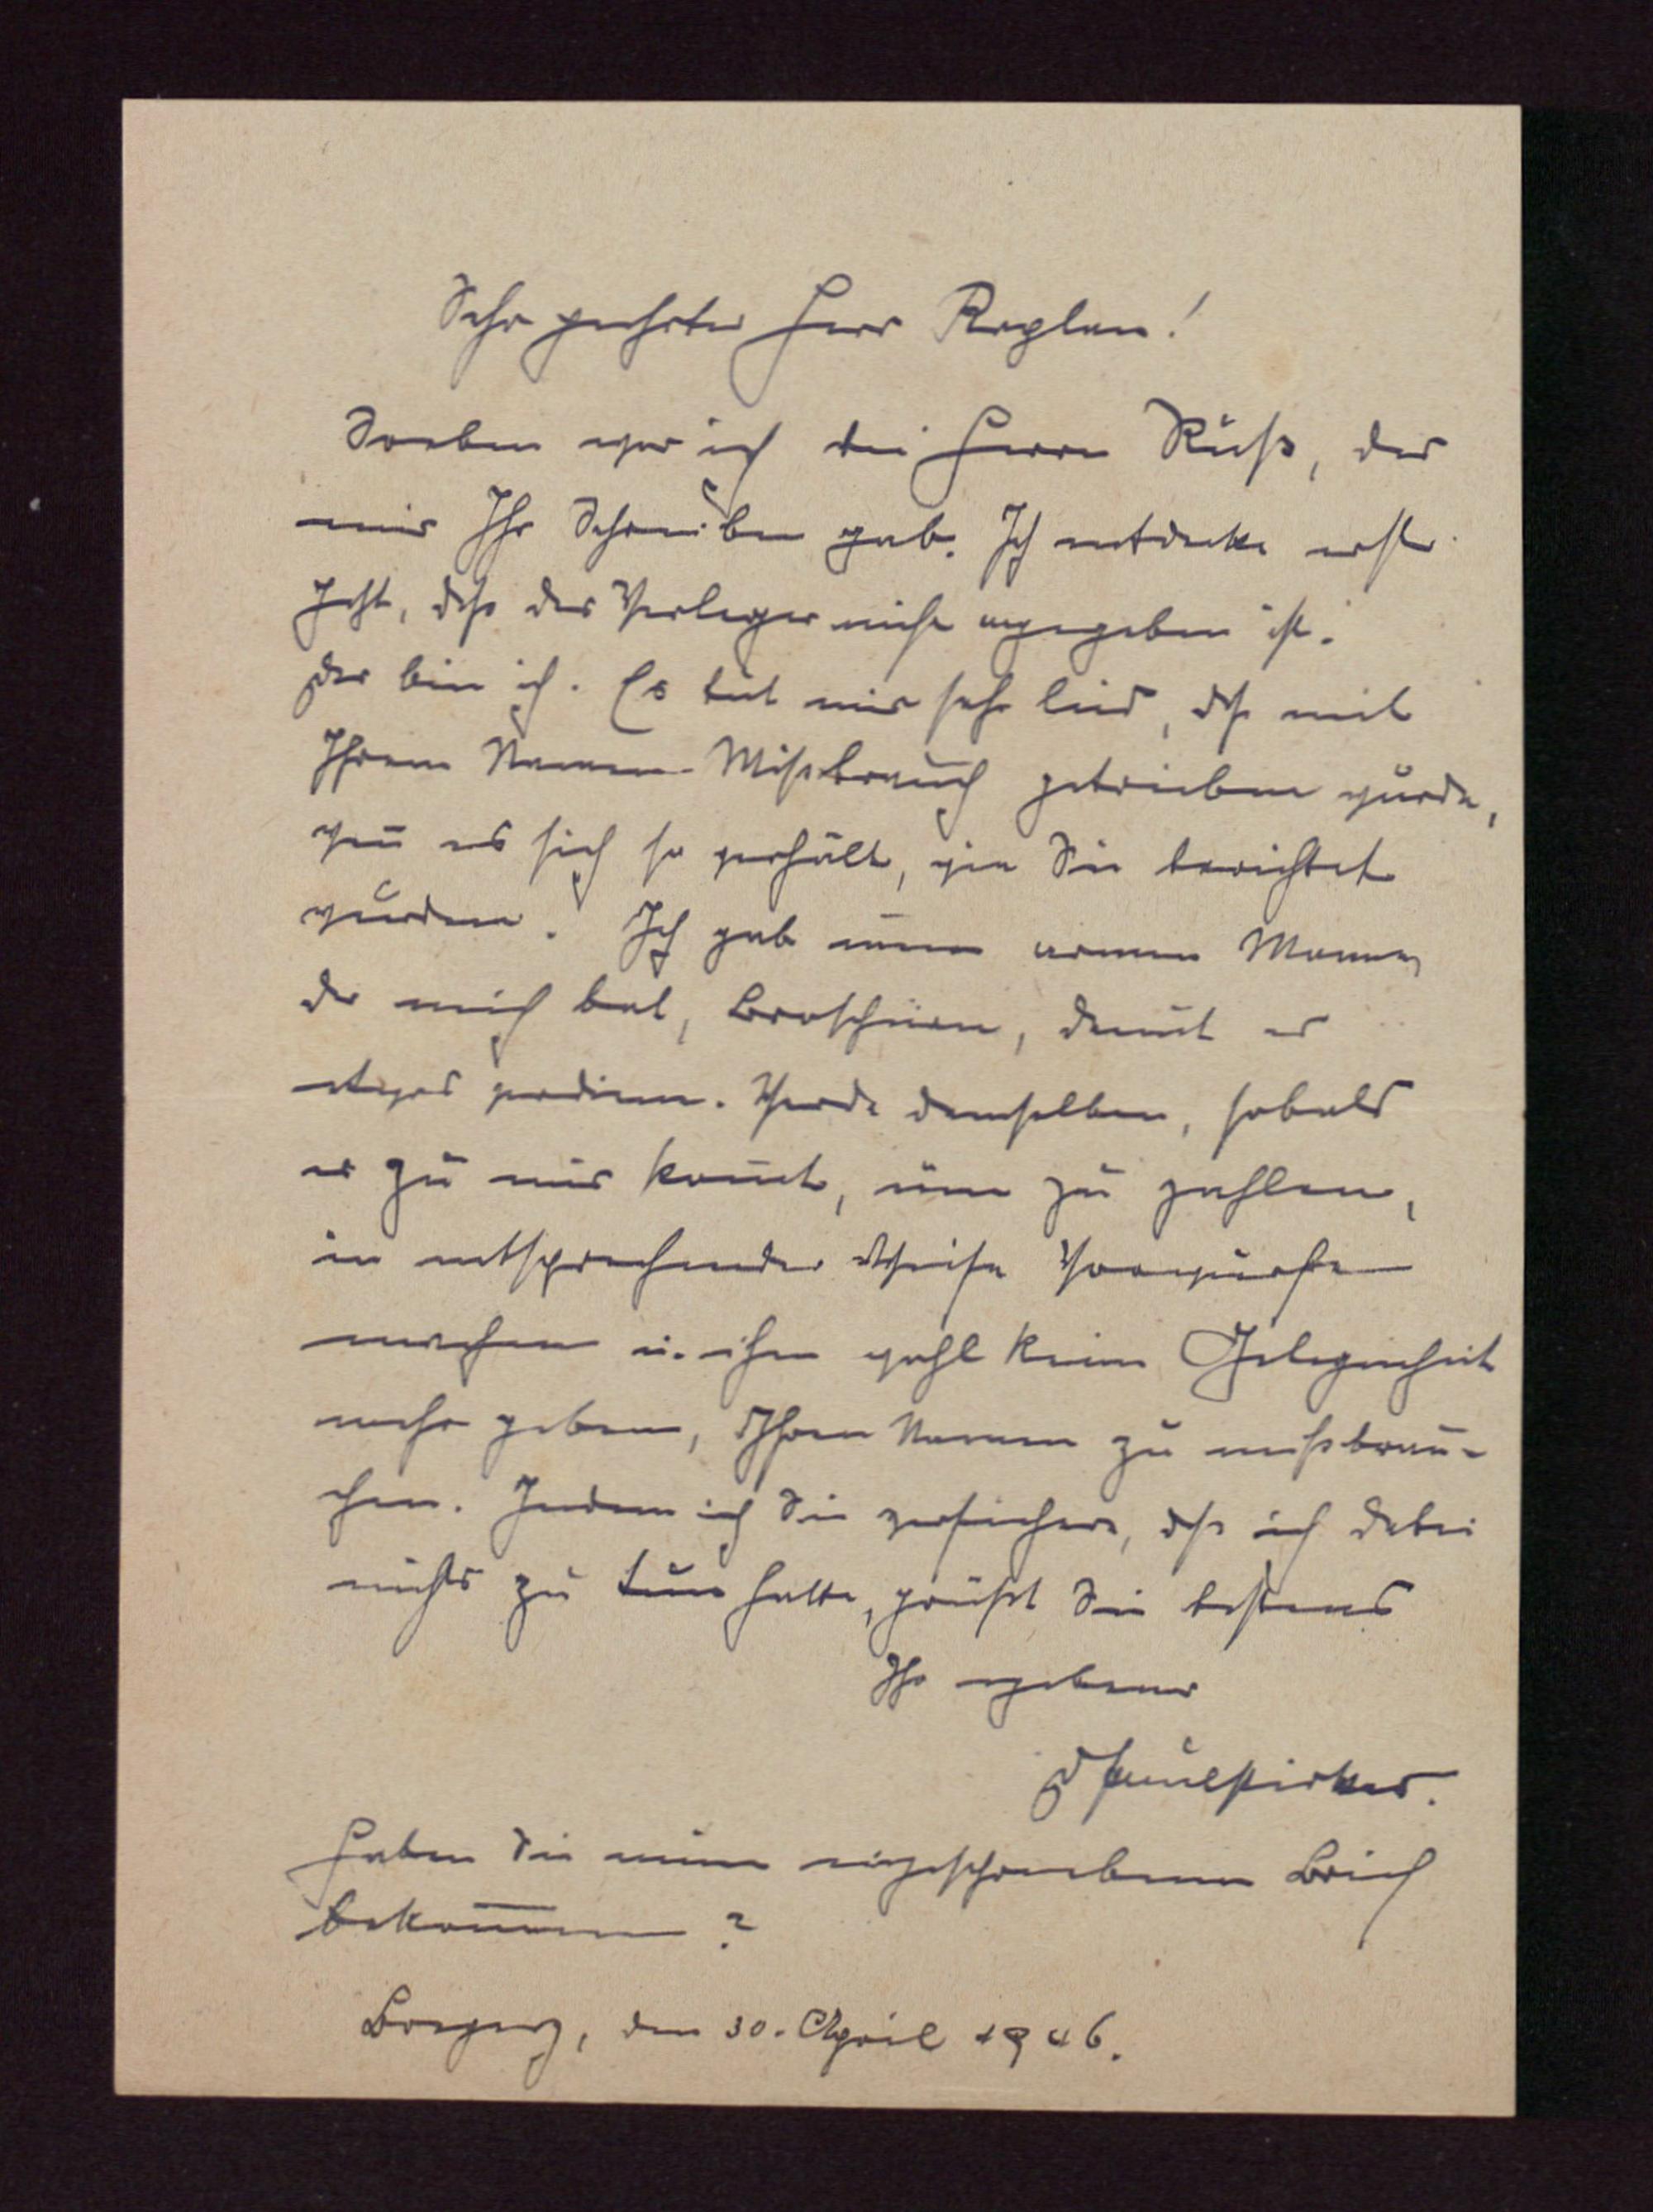 Sehr geehrter Herr Kaplan!
Soeben war ich bei Herrn Ruß, der
mir Ihr Schreiben gab. Ich entdecke erst
jetzt, dass der Verleger nicht angegeben ist.
Der bin ich. Es tut mir sehr leid, dass mit
Ihrem Namen Missbrauch getrieben wurde,
wen̄ es sich so verhält, wie Sie berichtet
wurden. Ich gab einem armen Manne,
der mich bat, Broschüren, damit er
etwas verdiene. Werde demselben, sobald
er zu mir kom̄t, um zu zahlen,
in entsprechender Weise Vorwürfe
machen u. ihm wohl keine Gelegenheit
mehr geben, Ihren Namen zu missbrau-
chen. Indem ich Sie versichere, dass ich dabei
nichts zu tun hatte, grüßt Sie bestens
Ihr ergebener
Haben Sie meinen eingeschriebenen Brief
bekom̄en?
Bregenz, den 30. April 1946.